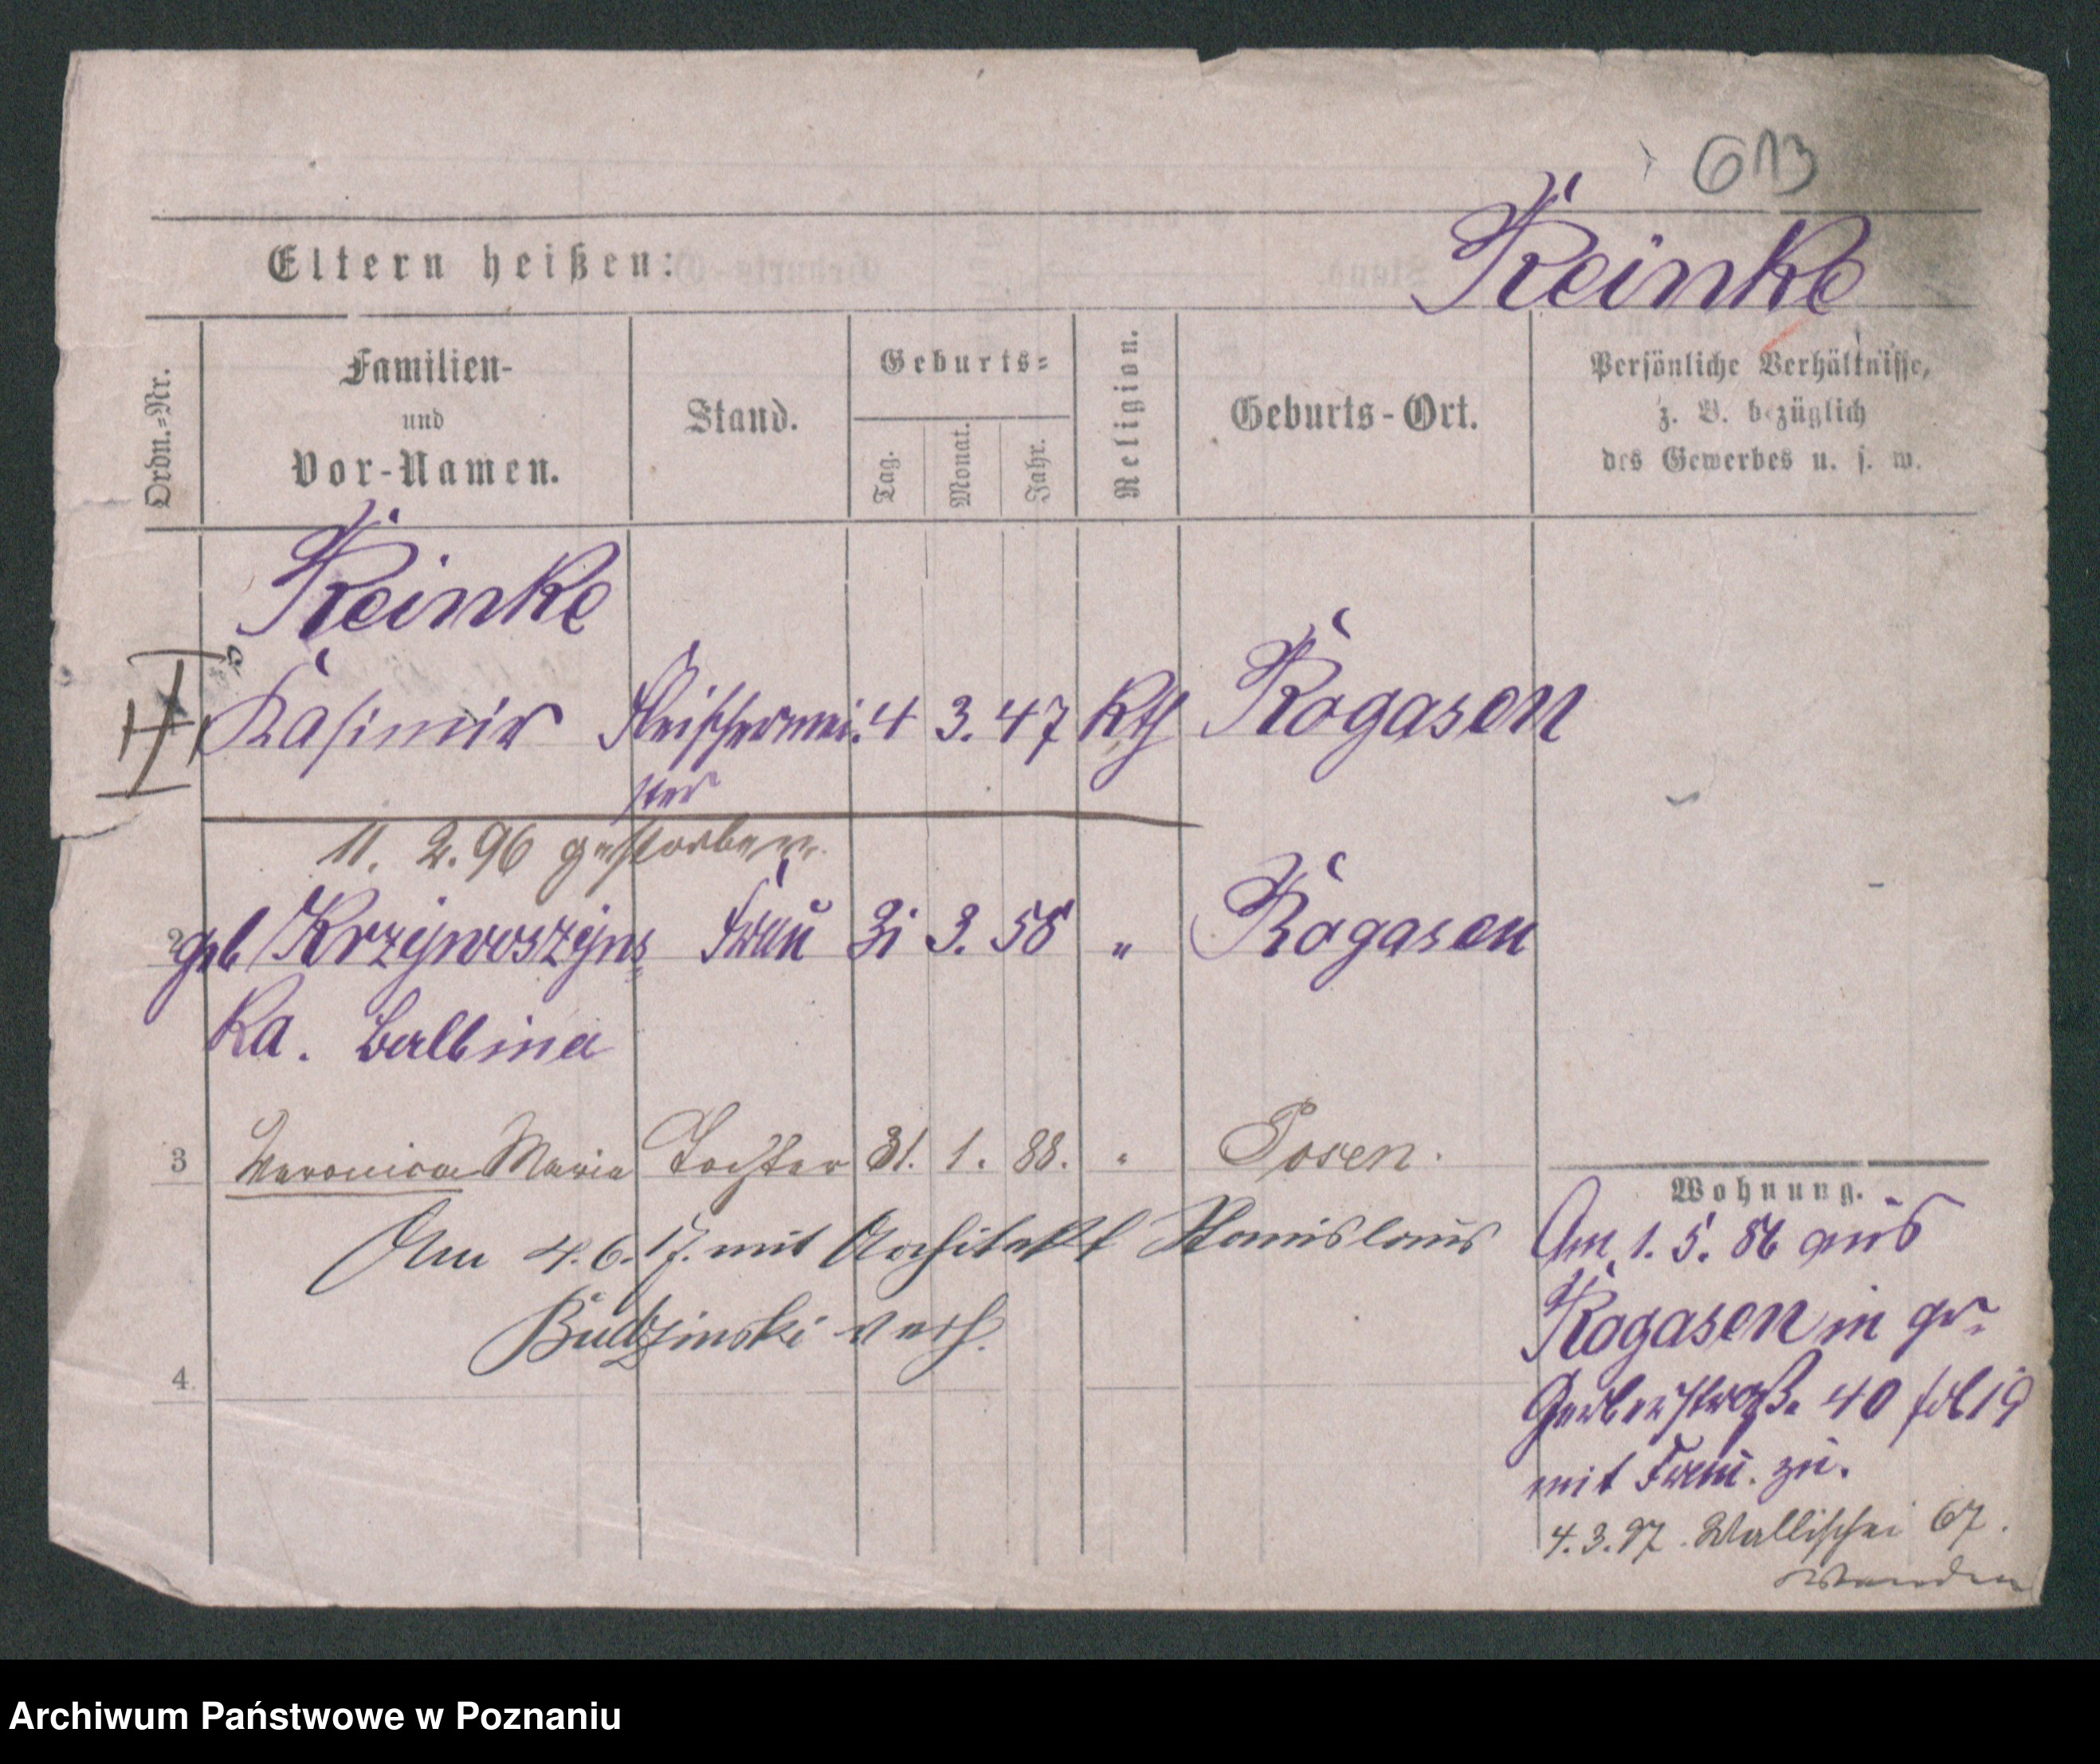 613
Reinke
Eltern heißen:
Ordn.=Nr.
Familien-
und
Vor-Namen.
Stand.
Geburts=
Tag.
Monat.
Jahr.
Religion.
Geburts-Ort.
Persönliche Verhältnisse,
z. B. bezüglich
des Gewerbes u. s. w.
Reinke
Kasimir Fleischermei= 4 3. 47 Kth Rogasen
ster
11. 2. 96 gestorben.
2 geb Krzywoszyns= Frau 31 3. 58 " Rogasen
ka. Balbina
3 Veronica Maria Tochter 31. 1. 88. " Posen.
Am 4. 6. 17. mit Architekt Stanislaus
Budzinski verh.
4
Wohnung.
Am 1. 5. 86 aus
Rogasen in gr.
Gerberstraße 40 fol 19
mit Frau. zu.
4. 3. 97. Wallischei 67.
Archiwum Państwowe w Poznaniu